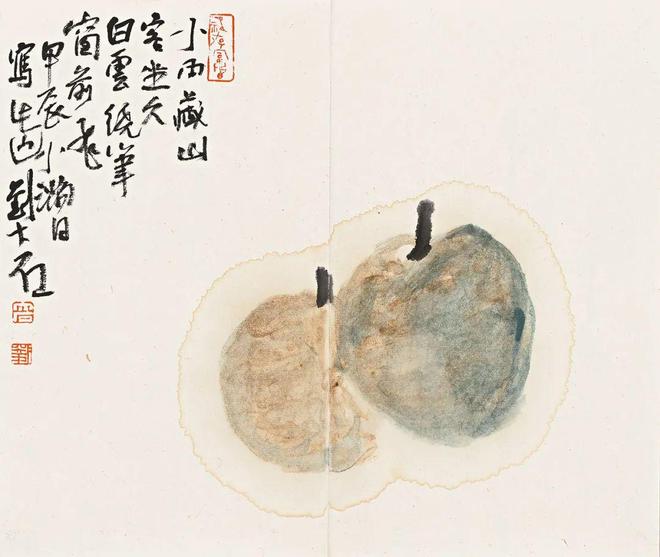 小雨藏山
客坐久
白雲繞筆
窗前飛
甲辰小滿日
寫生 劉大石